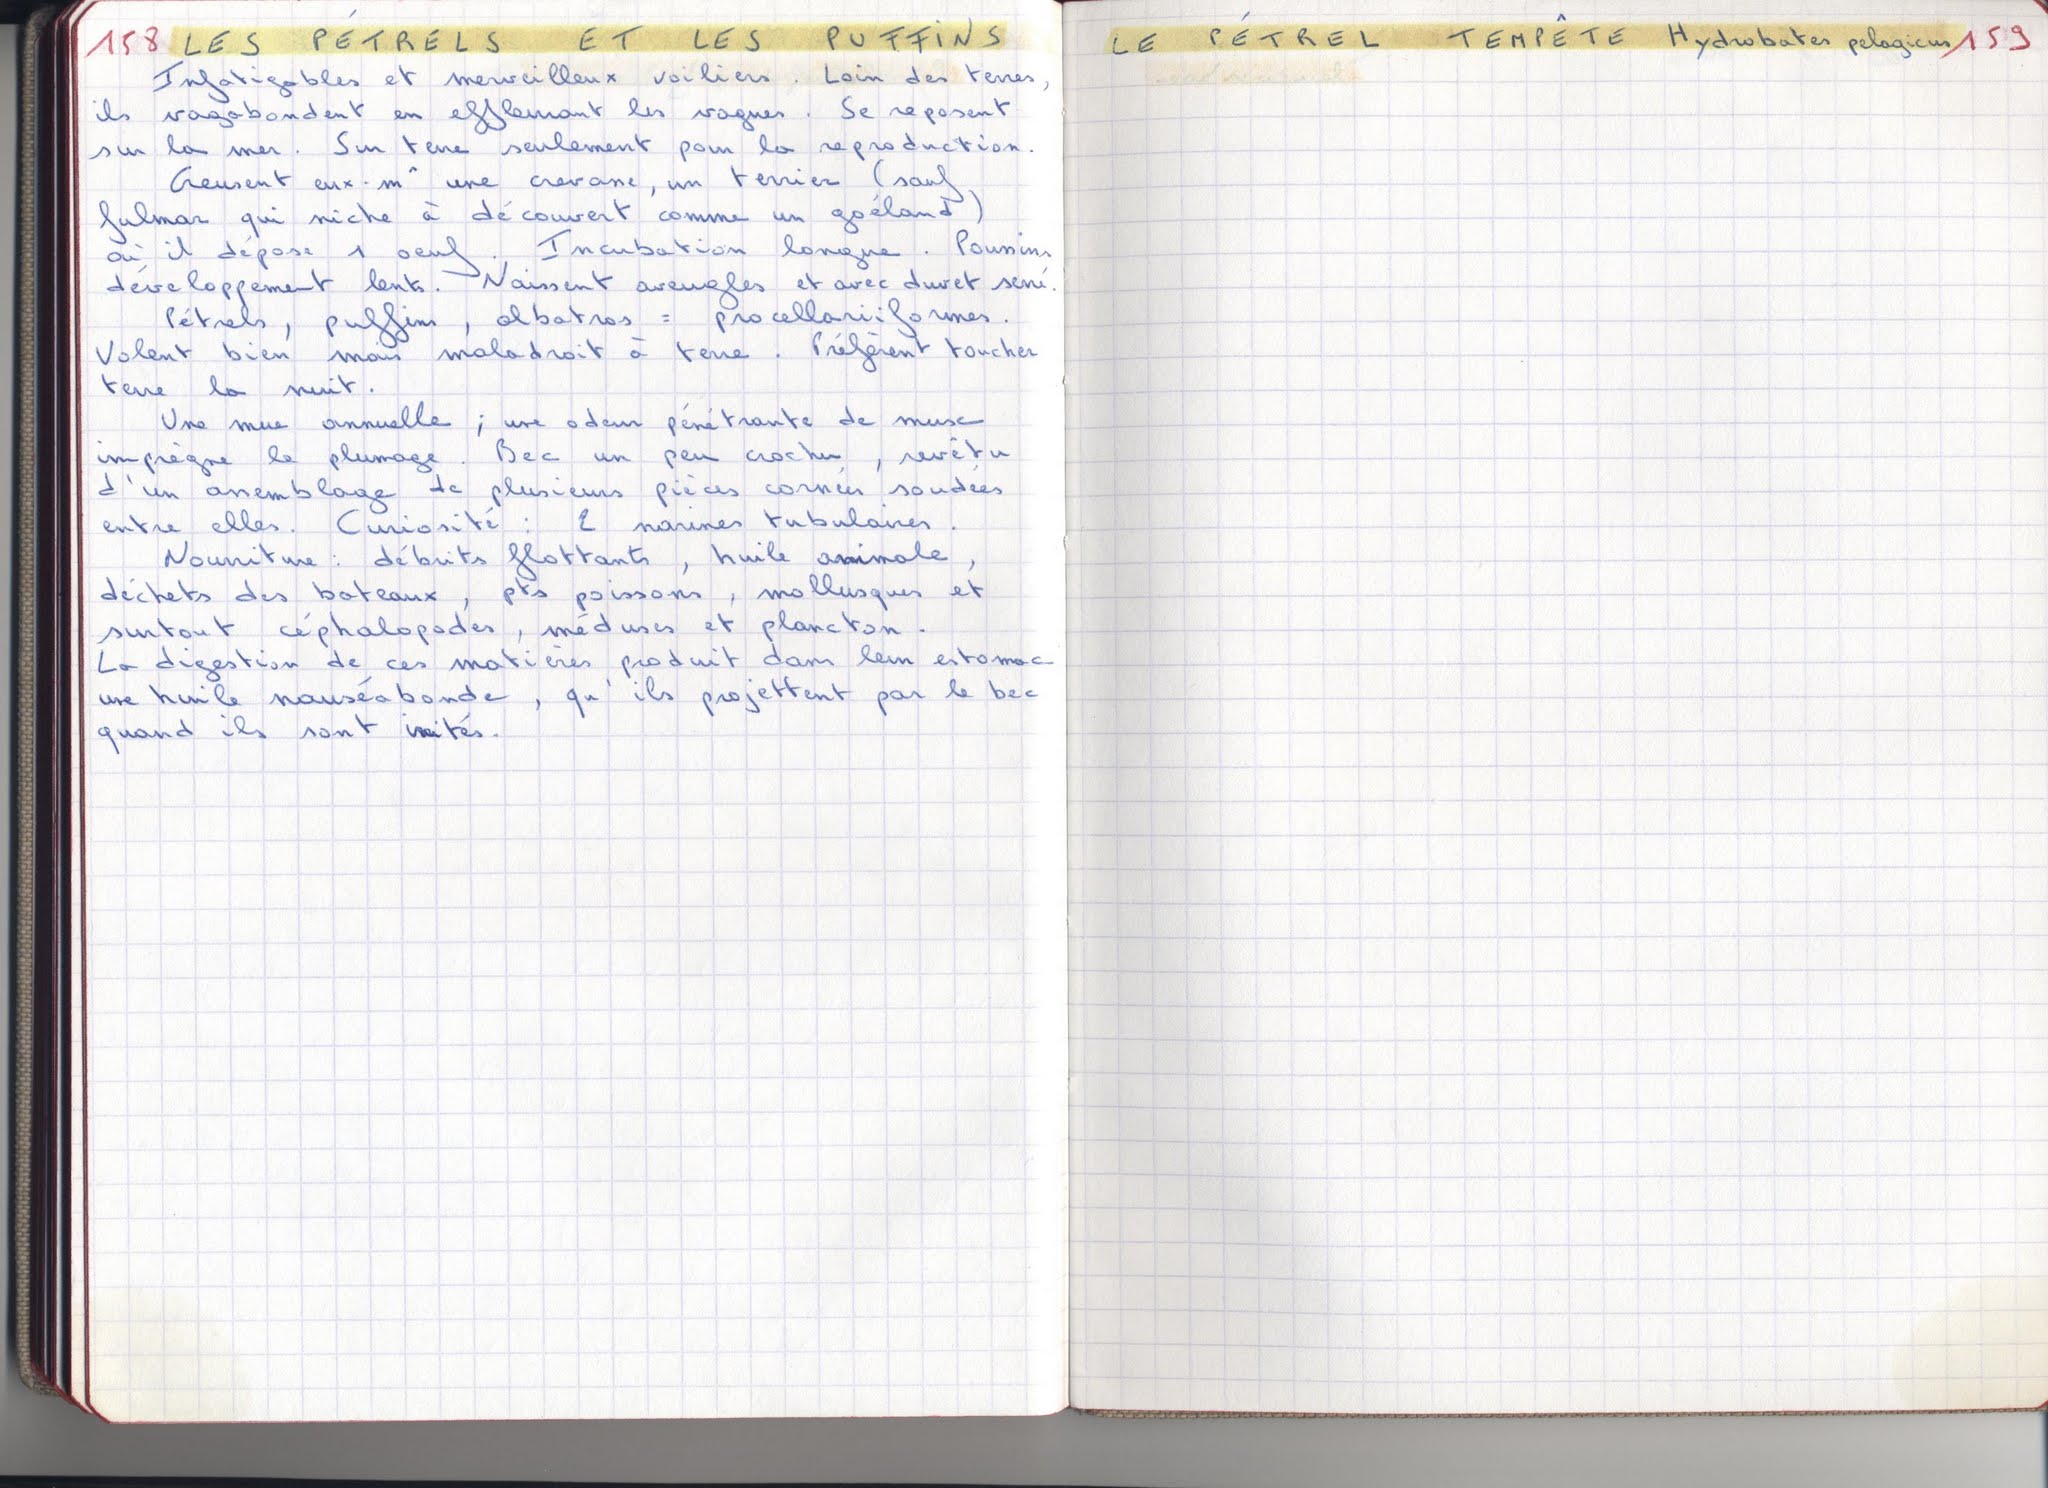 158 LES PÉTRELS ET LES PUFFINS
Infatigables et merveilleux voiliers. Loin des terres,
ils vagabondent en effleurant les vagues. Se reposent
sur la mer. Sur terre seulement pour la reproduction.
Creusent eux-m^ une crevasse, un terrier (sauf
fulmar qui niche à découvert comme un goéland)
où il dépose 1 oeuf. Incubation longue. Poussins
développement lents. Naissent aveugles et avec duvet serré.
Pétrels, puffins, albatros = procellariiformes.
Volent bien mais maladroit à terre. Préfèrent toucher
terre la nuit.
Une mue annuelle ; une odeur pénétrante de musc
imprègne le plumage. Bec un peu crochu, revêtu
d'un assemblage de plusieurs pièces cornées soudées
entre elles. Curiosité : 2 narines tubulaires.
Nourriture : débrits flottants, huile animale,
déchets des bateaux, pts poissons, mollusques et
surtout céphalopodes, méduses et plancton.
La digestion de ces matières produit dans leur estomac
une huile nauséabonde, qu'ils projettent par le bec
quand ils sont irrités.
LE PÉTREL TEMPÊTE Hydrobates pelagicus 159